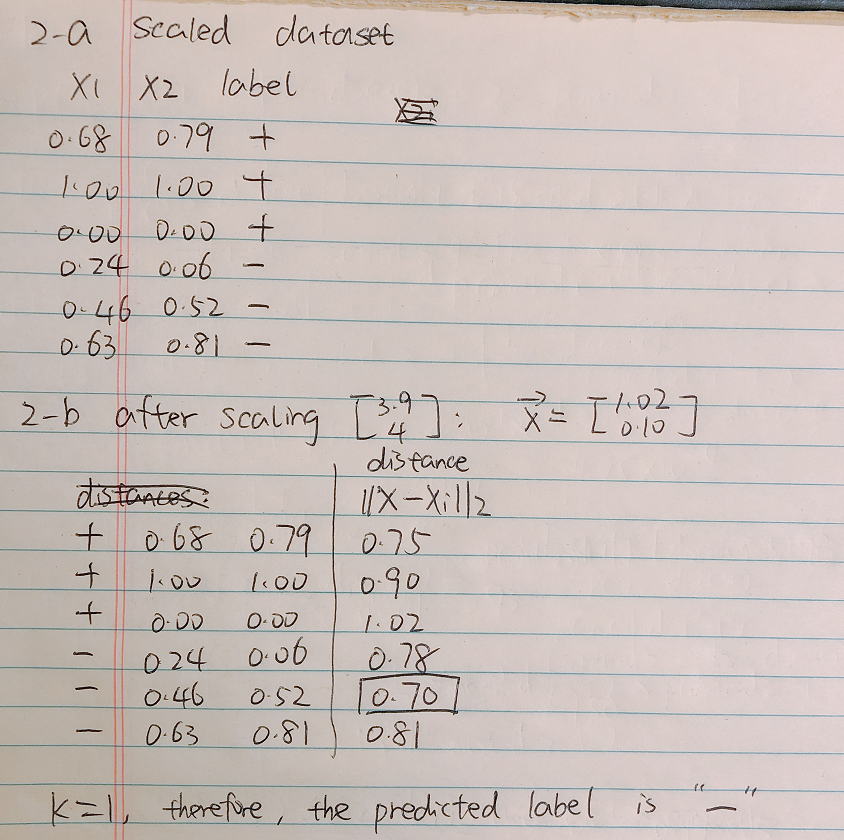 2-a scaled dataset
X1 X2 label
0.68 0.79 +
1.00 1.00 +
0.00 0.00 +
0.24 0.06 −
0.46 0.52 −
0.63 0.81 −
2-b after scaling [3.9 4]: x⃗ = [1.02 0.10]
distance
distances: ||X−Xi||2
+ 0.68 0.79 0.75
+ 1.00 1.00 0.90
+ 0.00 0.00 1.02
− 0.24 0.06 0.78
− 0.46 0.52 0.70
− 0.63 0.81 0.81
k=1, therefore, the predicted label is "−"